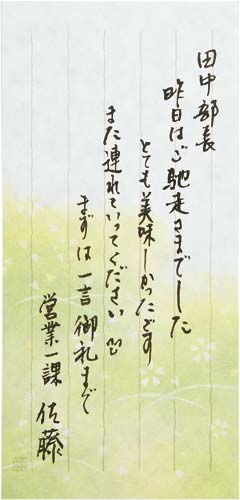 田中部長
昨日はご馳走さまでした
とても美味しかったです
また連れていってください
まずは一言御礼まで
営業一課 佐藤